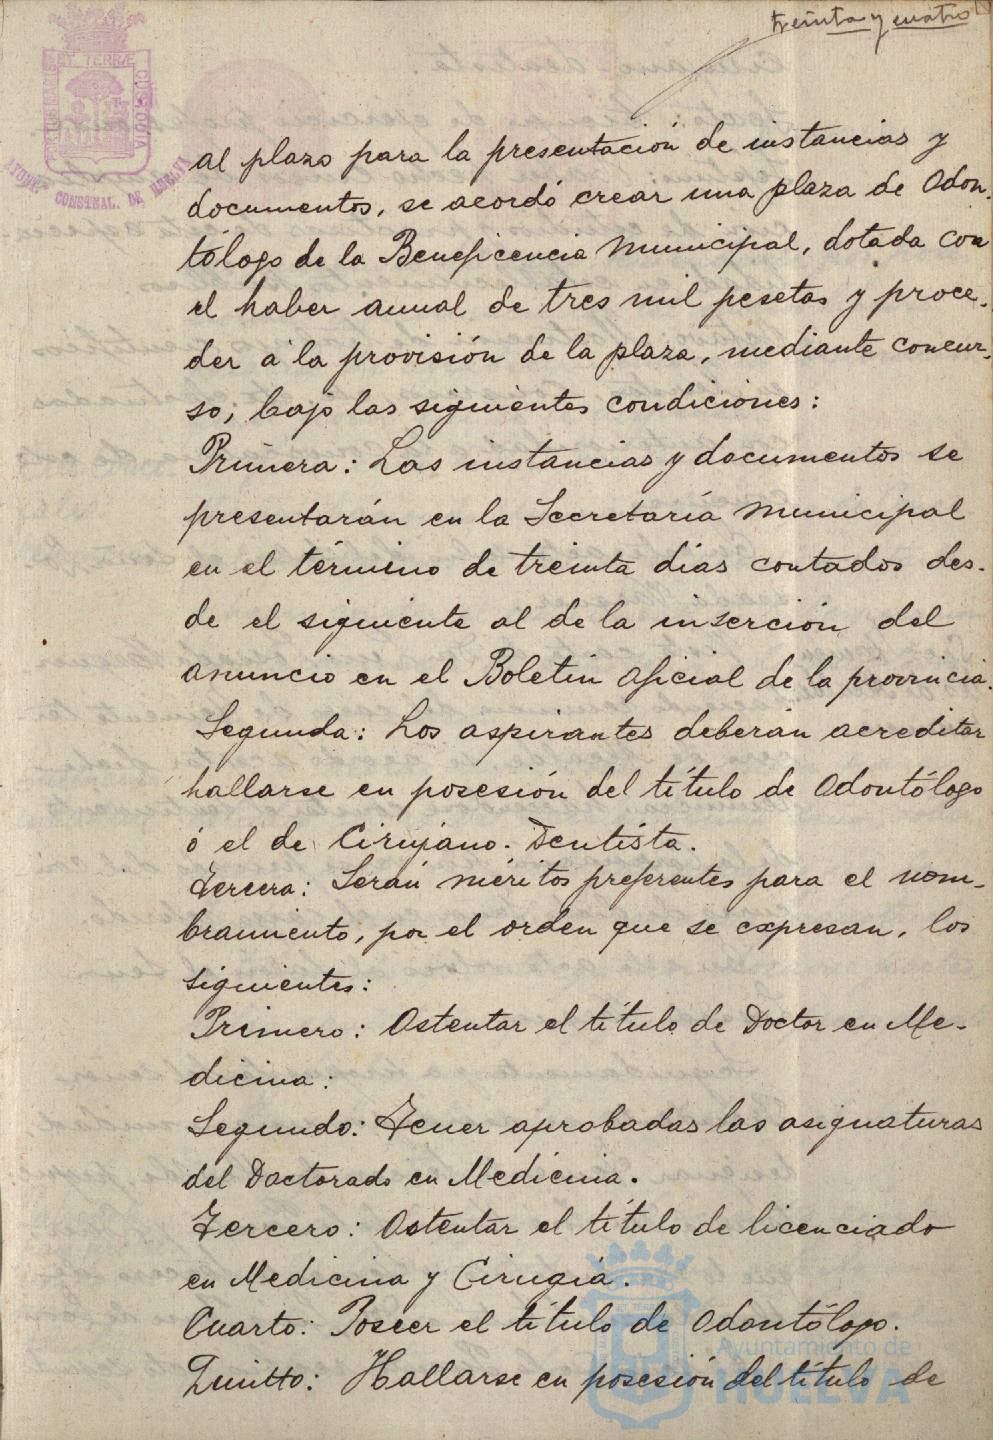 treinta y cuatro
PORTUS MARIS
ET TERRÆ
CUSTODIA
AYUNT. CONSTNAL. DE HUELVA
al plazo para la presentación de instancias y
documentos, se acordó crear una plaza de Odon-
tólogo de la Beneficencia Municipal, dotada con
el haber anual de tres mil pesetas y proce-
der á la provisión de la plaza, mediante concur-
so, bajo las siguientes condiciones:
Primera: Las instancias y documentos se
presentarán en la Secretaría Municipal
en el término de treinta días contados des-
de el siguiente al de la inserción del
anuncio en el Boletin Oficial de la provincia.
Segunda: Los aspirantes deberán acreditar
hallarse en posesión del título de Odontólogo
ó el de Cirujano-Dentista.
Tercera: Serán méritos preferentes para el nom-
bramiento, por el orden que se expresan, los
siguientes:
Primero: Ostentar el título de Doctor en Me-
dicina:
Segundo: Tener aprobadas las asignaturas
del Doctorado en Medicina.
Tercero: Ostentar el título de licenciado
en Medicina y Cirugía.
Cuarto: Poseer el título de Odontólogo.
Quinto: Hallarse en posesión del título de
Ayuntamiento de
HUELVA